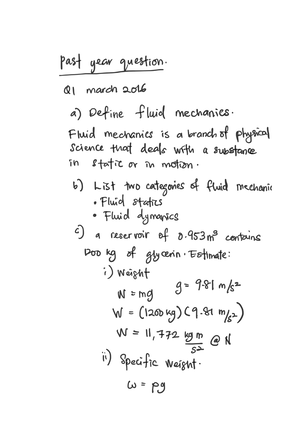 Past year question.
Q1 march 2016
a) Define fluid mechanics.
Fluid mechanics is a branch of physical
science that deals with a substance
in static or in motion.
b) List two categories of fluid mechanic
• Fluid statics
• Fluid dymanics
c) a reservoir of 0.953 m³ contains
kg of glycerin. Estimate:
i) Weight
W = mg g = 9.81 m/s²
W = (1200 kg) (9.81 m/s²)
W = 11,772 kg m/s² @ N
ii) Specific weight.
ω = ρg